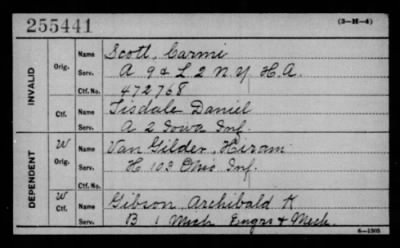 255441
(3-H-4)
INVALID
Orig.
Name Scott, Carmi
Serv. A 9 & L 2 N.Y. H.A.
Ctf. No. 472768
Ctf.
Name Tisdale Daniel
Serv. A 2 Iowa Inf.
DEPENDENT
W Orig.
Name Van Gilder, Hiram
Serv. H 103 Ohio Inf.
Ctf. No.
W Ctf.
Name Gibson, Archibald K
Serv. B 1 Mich Engrs & Mech.
6-1305